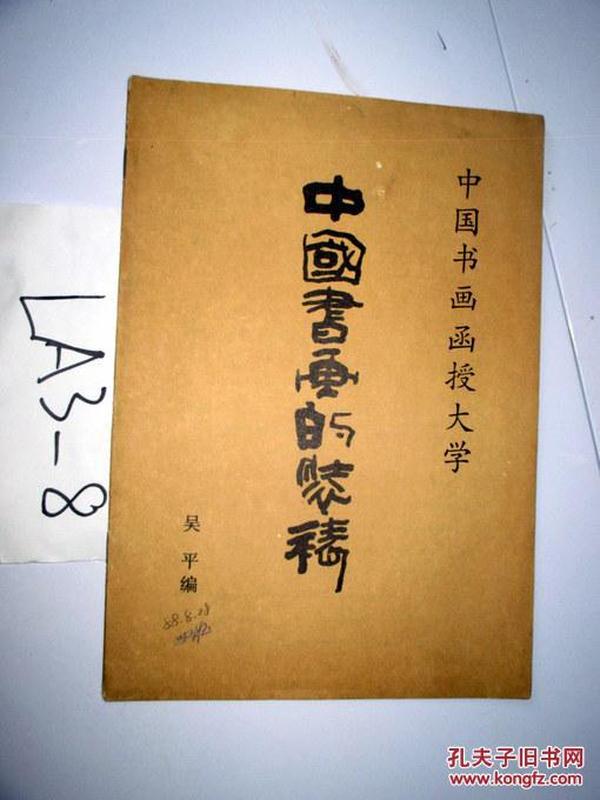 中国书画函授大学
中國書画的装裱
吴平编
88.8.28
LA3-8
孔夫子旧书网
www.kongfz.com